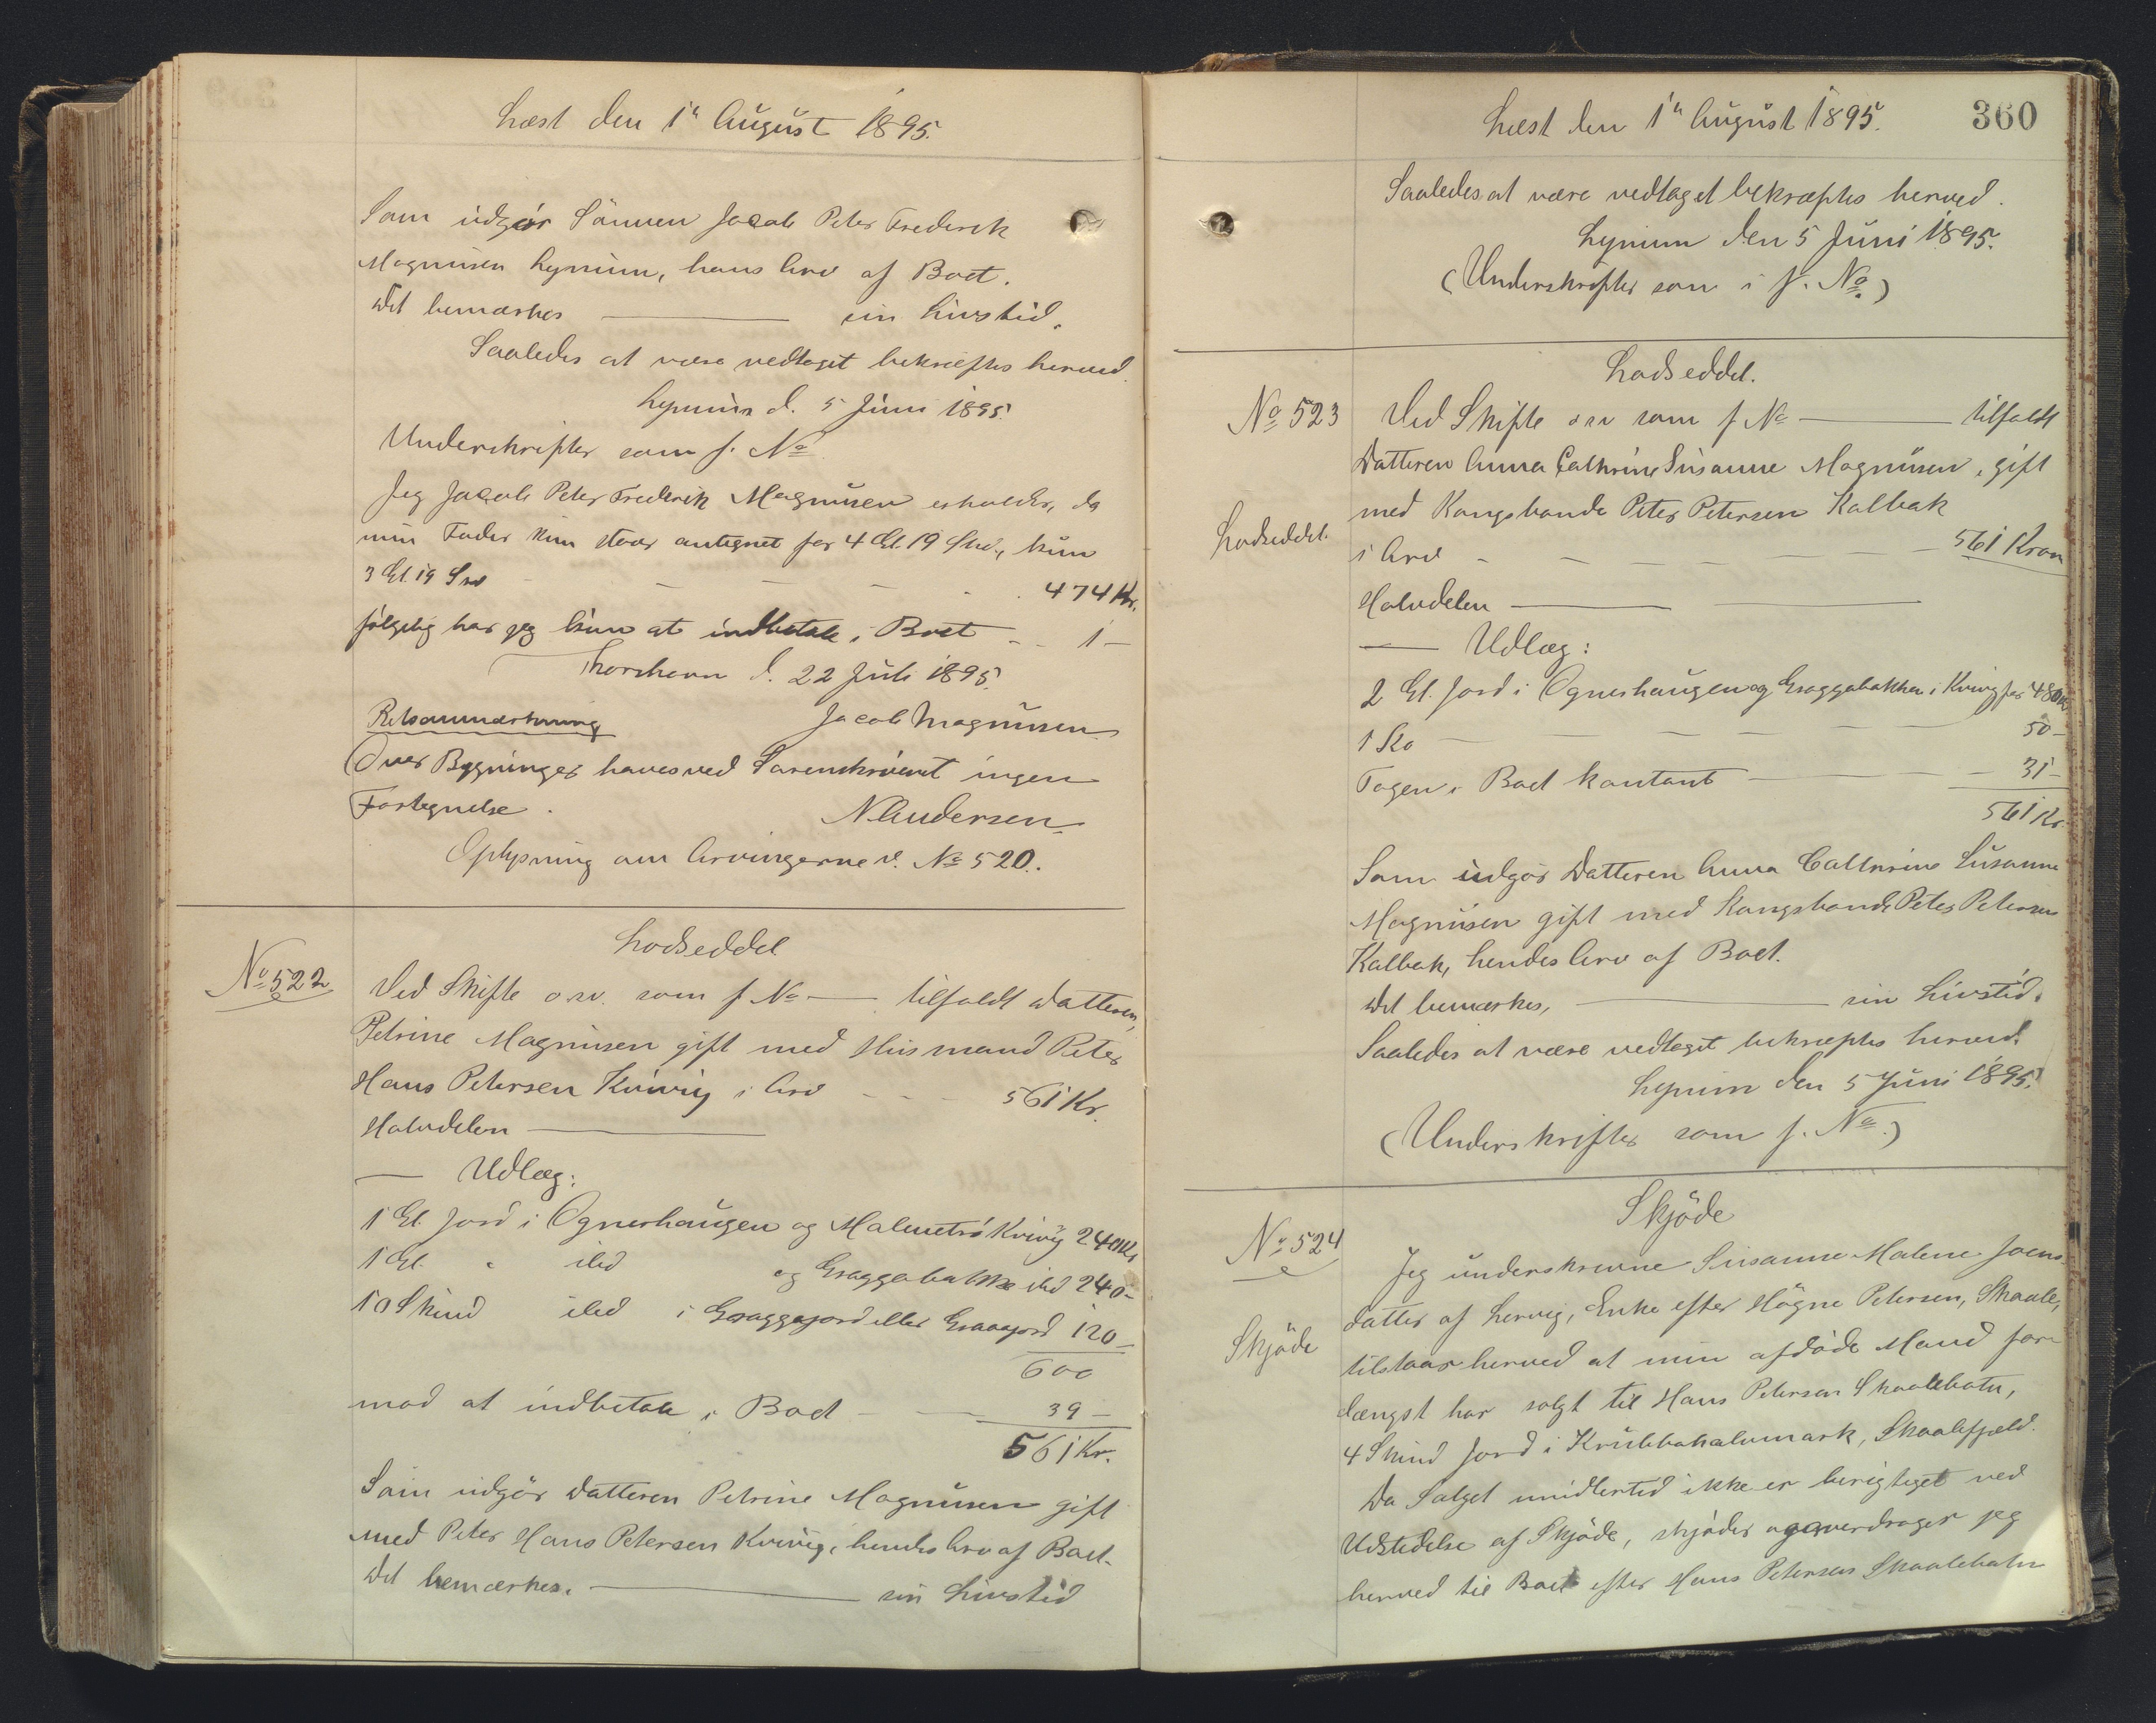 Læst den 1ste August 1895.
Som udgør Sönnen Jacob Peter Frederik
Magnusen Lynum, hans Arv af Boet.
Det bemærkes — sin Livstid.
Saaledes at være vedtaget bekræftes herved.
Lynum d. 5 Juni 1895.
Underskrifter som f. No
Jeg Jacob Peter Frederik Magnusen erholder, da
min Fader kun staar antegnet for 4 Gl. 19 Skd., kun
3 Gl. 19 Skd - - - - 474 Kr.
følgelig har jeg kun at indbetale i Boet - - 1 -
Thorshavn d. 22 Juli 1895.
Jacob Magnusen
Retsanmærkning
Over Bygninger haves ved Sorenskriveriet ingen
Fortegnelse.
N. Andersen.
Oplysning om Arvingerne v. No 520.
Lodseddel
No 522
Ved Skifte o.s.v. som f No — tilfaldt Datteren,
Petrine Magnusen gift med Husmand Peter
Hans Petersen Kvivig i Arv - - - 561 Kr.
Halvdelen —
— Udlæg:
1 Gl. Jord i Ognerhaugen og Malmetrö Kvivig 240 Kr
1 Gl. " ibd og Graggabakke ibd 240 -
10 Skind ibd i Graggajord eller Graajord 120 -
600
mod at indbetale i Boet - — 39 -
561 Kr.
Som udgör Datteren Petrine Magnusen gift
med Peter Hans Petersen Kvivig, hendes Arv af Boet.
Det bemærkes. — sin Livstid
Læst den 1ste August 1895.
360
Saaledes at være vedtaget bekræftes herved.
Lynum den 5 Juni 1895.
(Underskrifter som i f. No.)
Lodseddel.
No 523
Ved Skifte osv som f No — tilfaldt
Datteren Anna Cathrine Susanne Magnusen, gift
med Kongsbonde Peter Petersen Kalbak
Lodseddel.
i Arv - - - - - 561 Kron
Halvdelen — —
— Udlæg:
2 Gl. Jord i Ognerhaugen og Graggabakken i Kvivig for 480 Kr
1 Ko - - - - 50 -
Tagen i Boet kontant - - - 31 -
561 Kr.
Som udgör Datteren Anna Cathrine Susanne
Magnusen gift med Kongsbonde Peter Petersen
Kalbak, hendes Arv af Boet.
Det bemærkes, — sin Livstid.
Saaledes at være vedtaget bekræftes herved.
Lynum den 5 Juni 1895.
(Underskrifter som f. No.)
Skjöde
No 524
Jeg underskrevne Susanne Malene Joens-
datter af Lervig, Enke efter Högne Petersen, Skaale,
Skjöde
tilstaar herved at min afdöde Mand for-
længst har solgt til Hans Petersen Skaalebotn,
4 Skind Jord i Krubbahalumark, Skaalefjeld.
Da Salget imidlertid ikke er berigtiget ved
Udstedelse af Skjöde, skjöder og overdrager jeg
herved til Boet efter Hans Petersen Skaalebotn